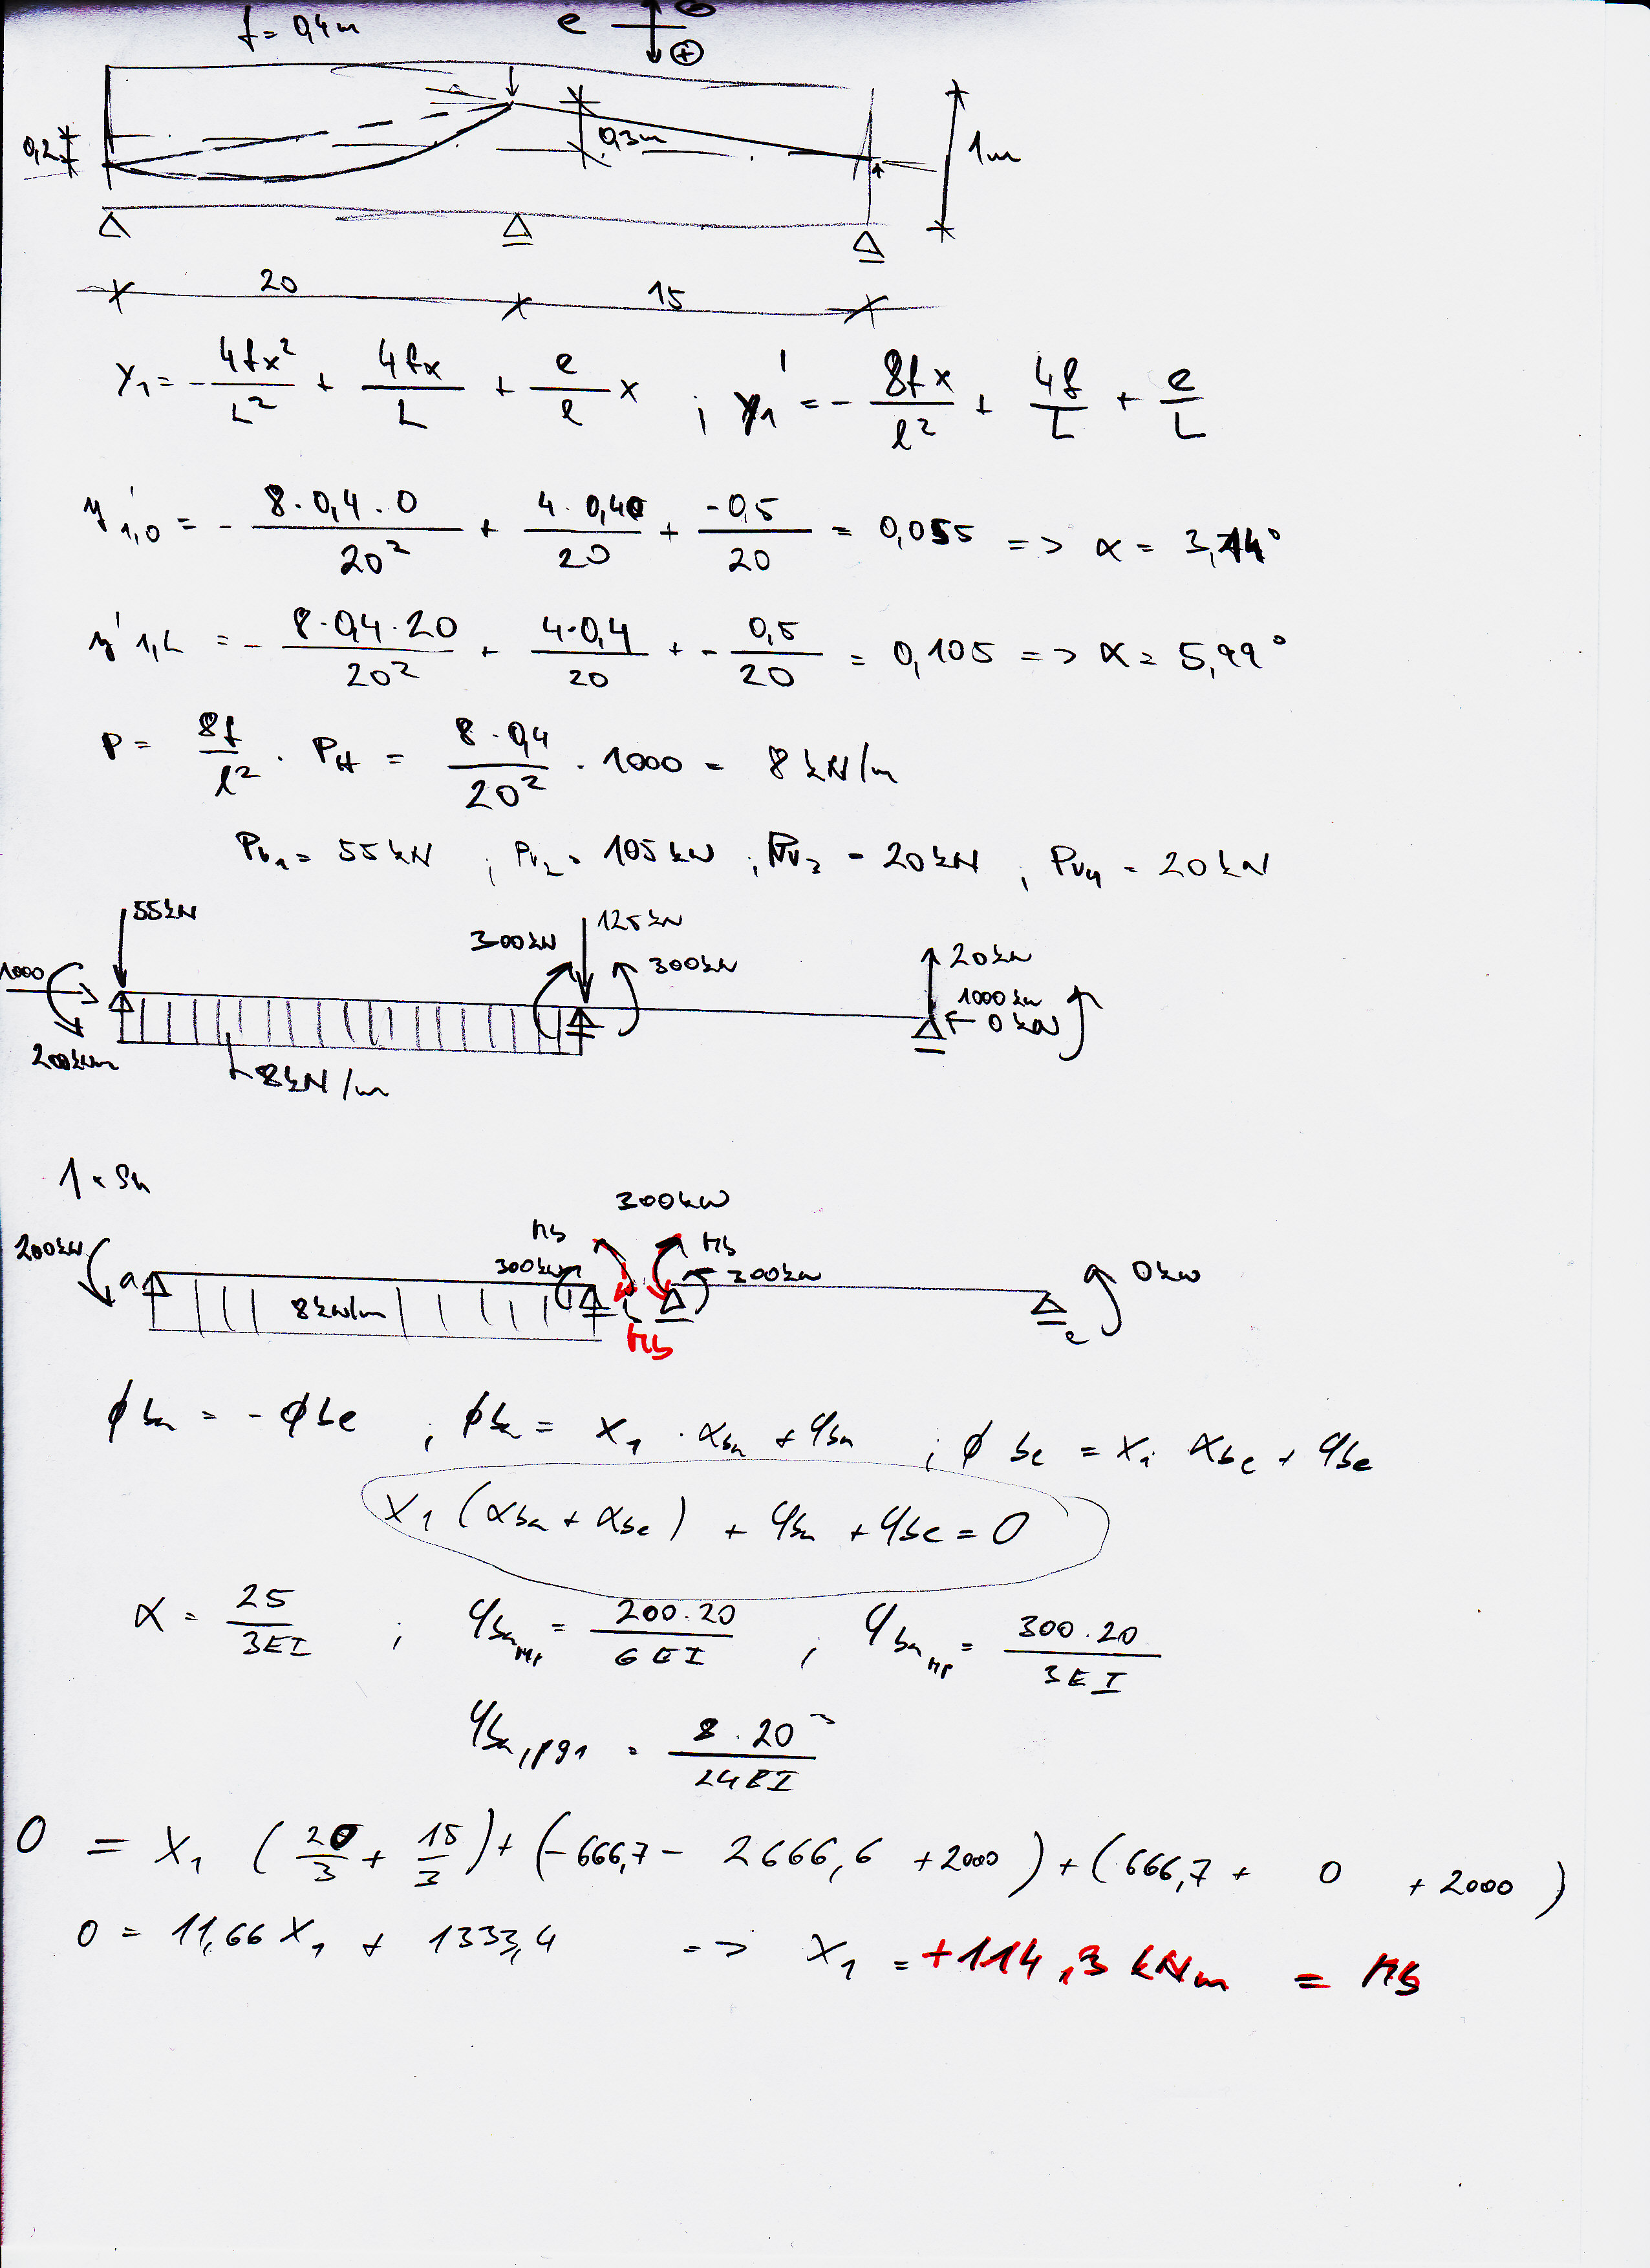 f = 0,4m e ⊖
⊕
0,2 0,3m 1m
20 15
y₁ = - 4fx²/L² + 4fx/L + e/l x ; y₁' = - 8fx/l² + 4f/L + e/L
y'₁,₀ = - 8·0,4·0/20² + 4·0,40/20 + -0,5/20 = 0,055 => α = 3,14°
y'1,L = - 8·0,4·20/20² + 4·0,4/20 + - 0,5/20 = 0,105 => α = 5,99°
P = 8f/l² · P_H = 8·0,4/20² · 1000 = 8 kN/m
Pv₁ = 55 kN ; Pv₂ = 105 kN ; Pv₃ = 20 kN ; Pv₄ = 20 kN
55kN 300kN 125kN 300kN 20kN
1000 1000kN
0kN
200kNm 8kN/m
300kN
200kN a Mb 300kN Mb 300kN 0kN
8kN/m Mb c
ϕba = - ϕbc ; ϕba = X₁ · αba + φba ; ϕbc = X₁ αbc + φbc
X₁ (αba + αbc) + φba + φbc = 0
α = 25/3EI ; φba = 200·20/6EI ; φba = 300·20/3EI
φba,pg1 = 8·20³/24EI
0 = X₁ (20/3 + 15/3) + (-666,7 - 2666,6 + 2000) + (666,7 + 0 + 2000)
0 = 11,66 X₁ + 1333,4 => X₁ = +114,3 kNm = Mb